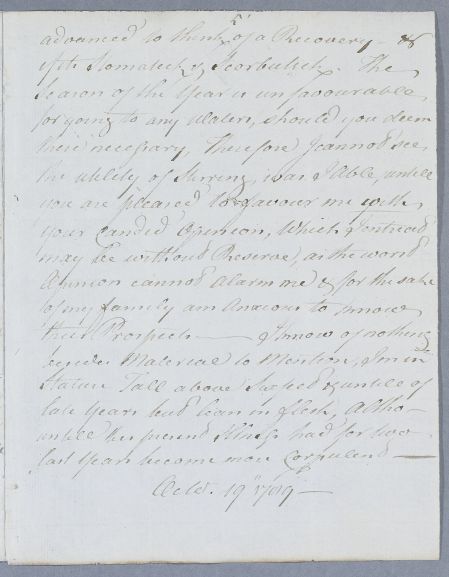 advanced to think of a Recovery - &
if the Stomatick & Scorbutick. The
Season of the Year is unfavourable
for going to any Waters, should you deem
these necessary, Therefore I cannot see
the utility of Stirring, was I Able, untill
you are pleased to favour me with
your Candid Opinion, Which I entreat
may be without Reserve, as the worst
Opinion cannot alarm me & for the sake
of my family am Anxious to know
their Prospects — I know of nothing
Material to Mention, I'm in
Stature Tall above Six feet & untill of
late Years but lean in flesh, Altho-
untill this present Illness had for two
last Years become more Corpulent —
Octr. 19th